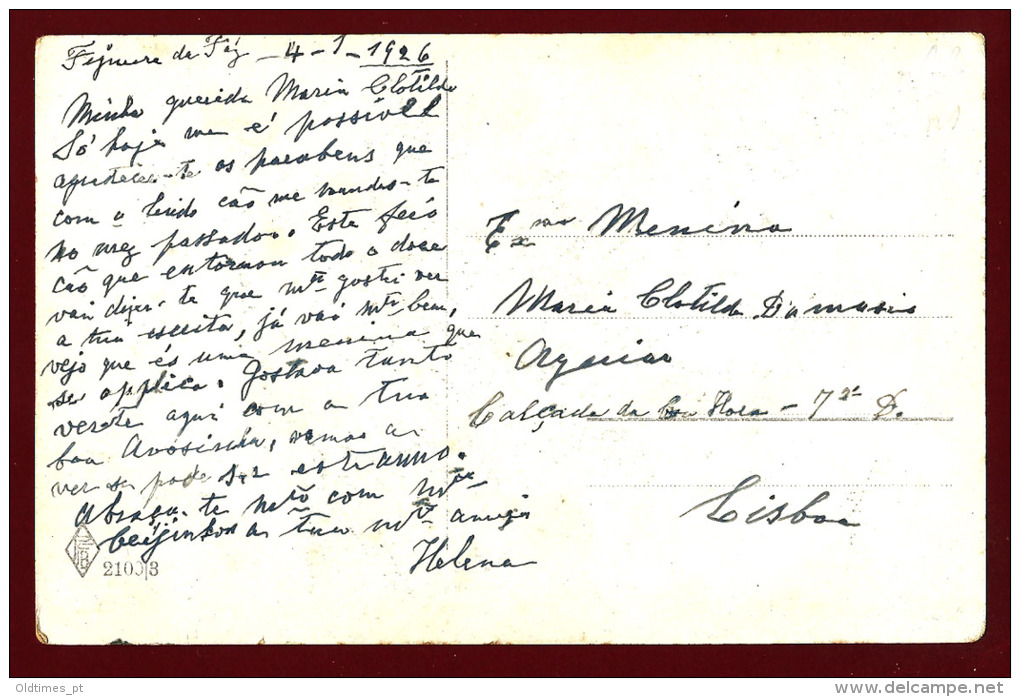 Figueira da Fóz - 4 - 1 - 1926
Minha querida Maria Clotilde
Só hoje me é possivel
agradecer-te os parabens que
com o lindo cão me mandas-te
no mez passado. Este feio
cão que entornou todo o doce
vai dizer-te que mto gostei ver
a tua escrita, já vai mto bem,
vejo que és uma menina que
se applica. Gostava tanto
ver-te aqui com a tua
boa Avósinha, vamos a
ver se pode ser este anno.
Abraça-te mto com mtos
beijinhos a tua mto amiga
Helena
2100/3
Exma Menina
Maria Clotilde Damasio
Aguiar
Calçada da Boa Hora - 7 2º D.
Lisboa
Oldtimes_pt
delcampe.net